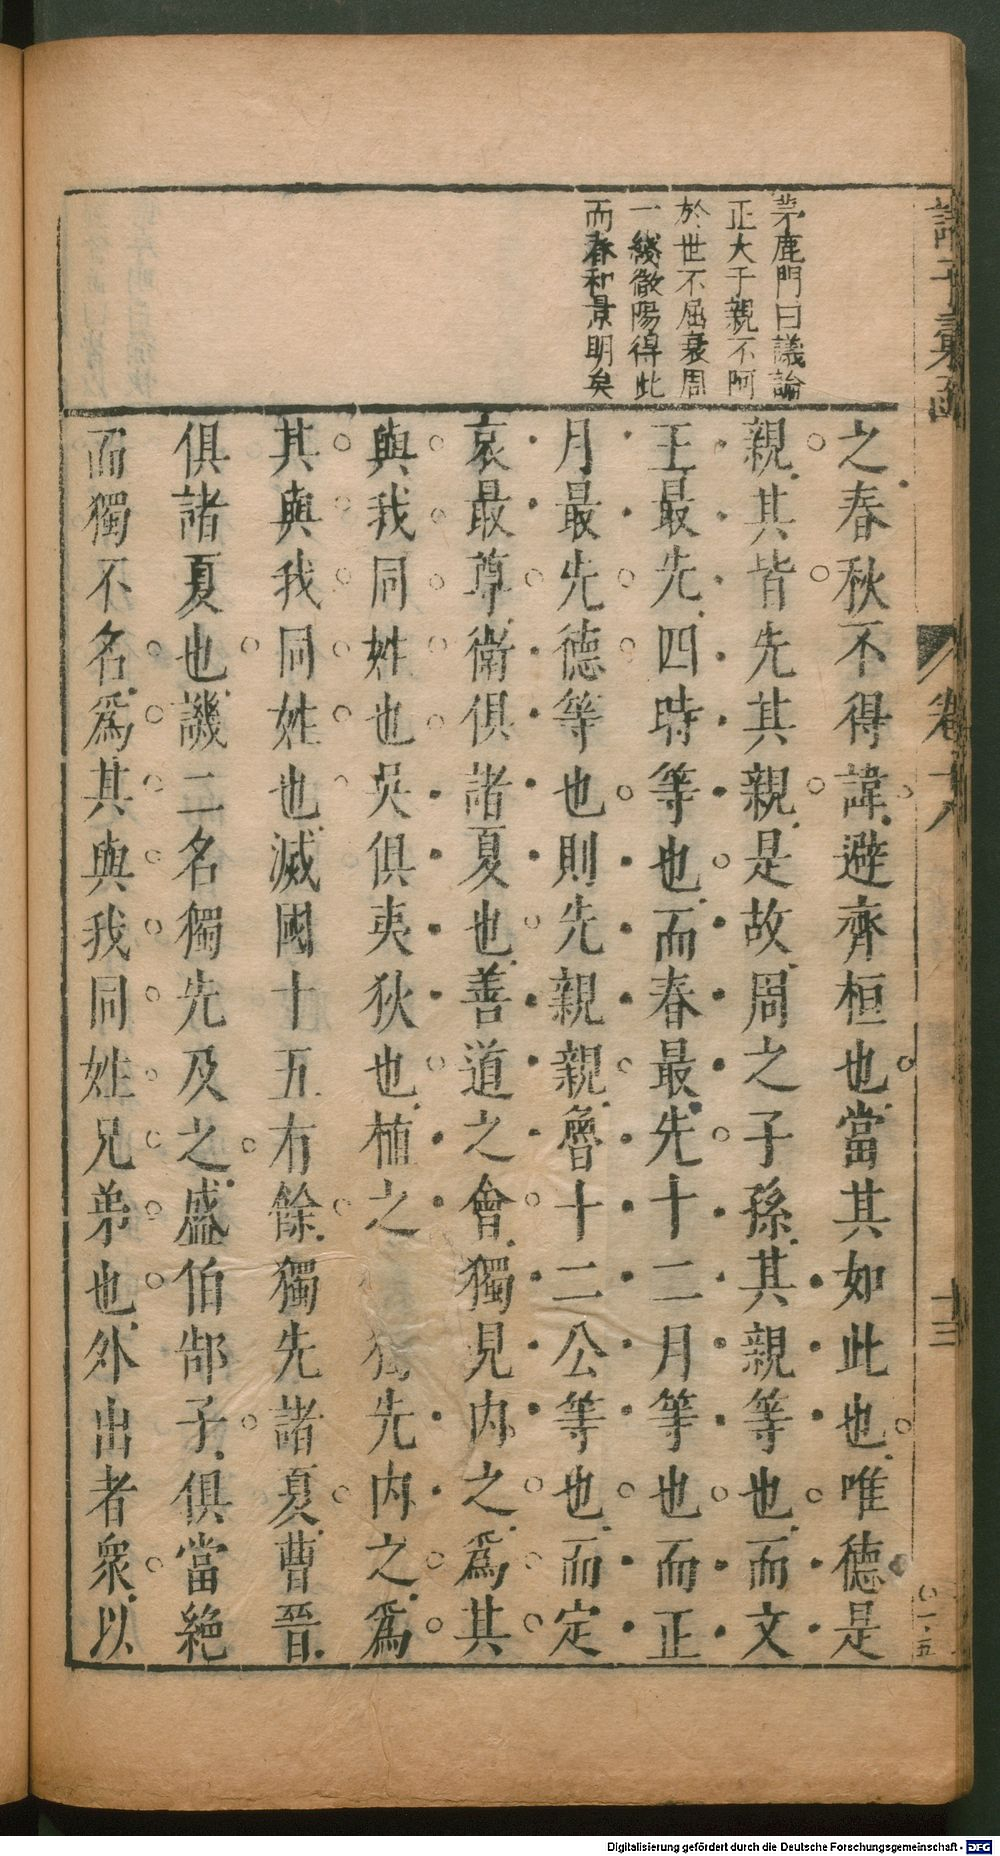 茅鹿門曰議論
正大于親不阿
於世不屈衰周
一綫微陽得此
而春和景明矣
之春秋不得諱避齊桓也當其如此也唯德是
親其皆先其親是故周之子孫其親等也而文
王最先四時等也而春最先十二月等也而正
月最先德等也則先親親魯十二公等也而定
哀最尊衛俱諸夏也善道之會獨見内之為其
與我同姓也吳俱夷狄也柤之獨先内之為
其與我同姓也滅國十五有餘獨先諸夏曹晉
俱諸夏也譏二名獨先及之盛伯郜子俱當絶
而獨不名為其與我同姓兄弟也外出者衆以
卷十八
十三
Digitalisierung gefördert durch die Deutsche Forschungsgemeinschaft - DFG